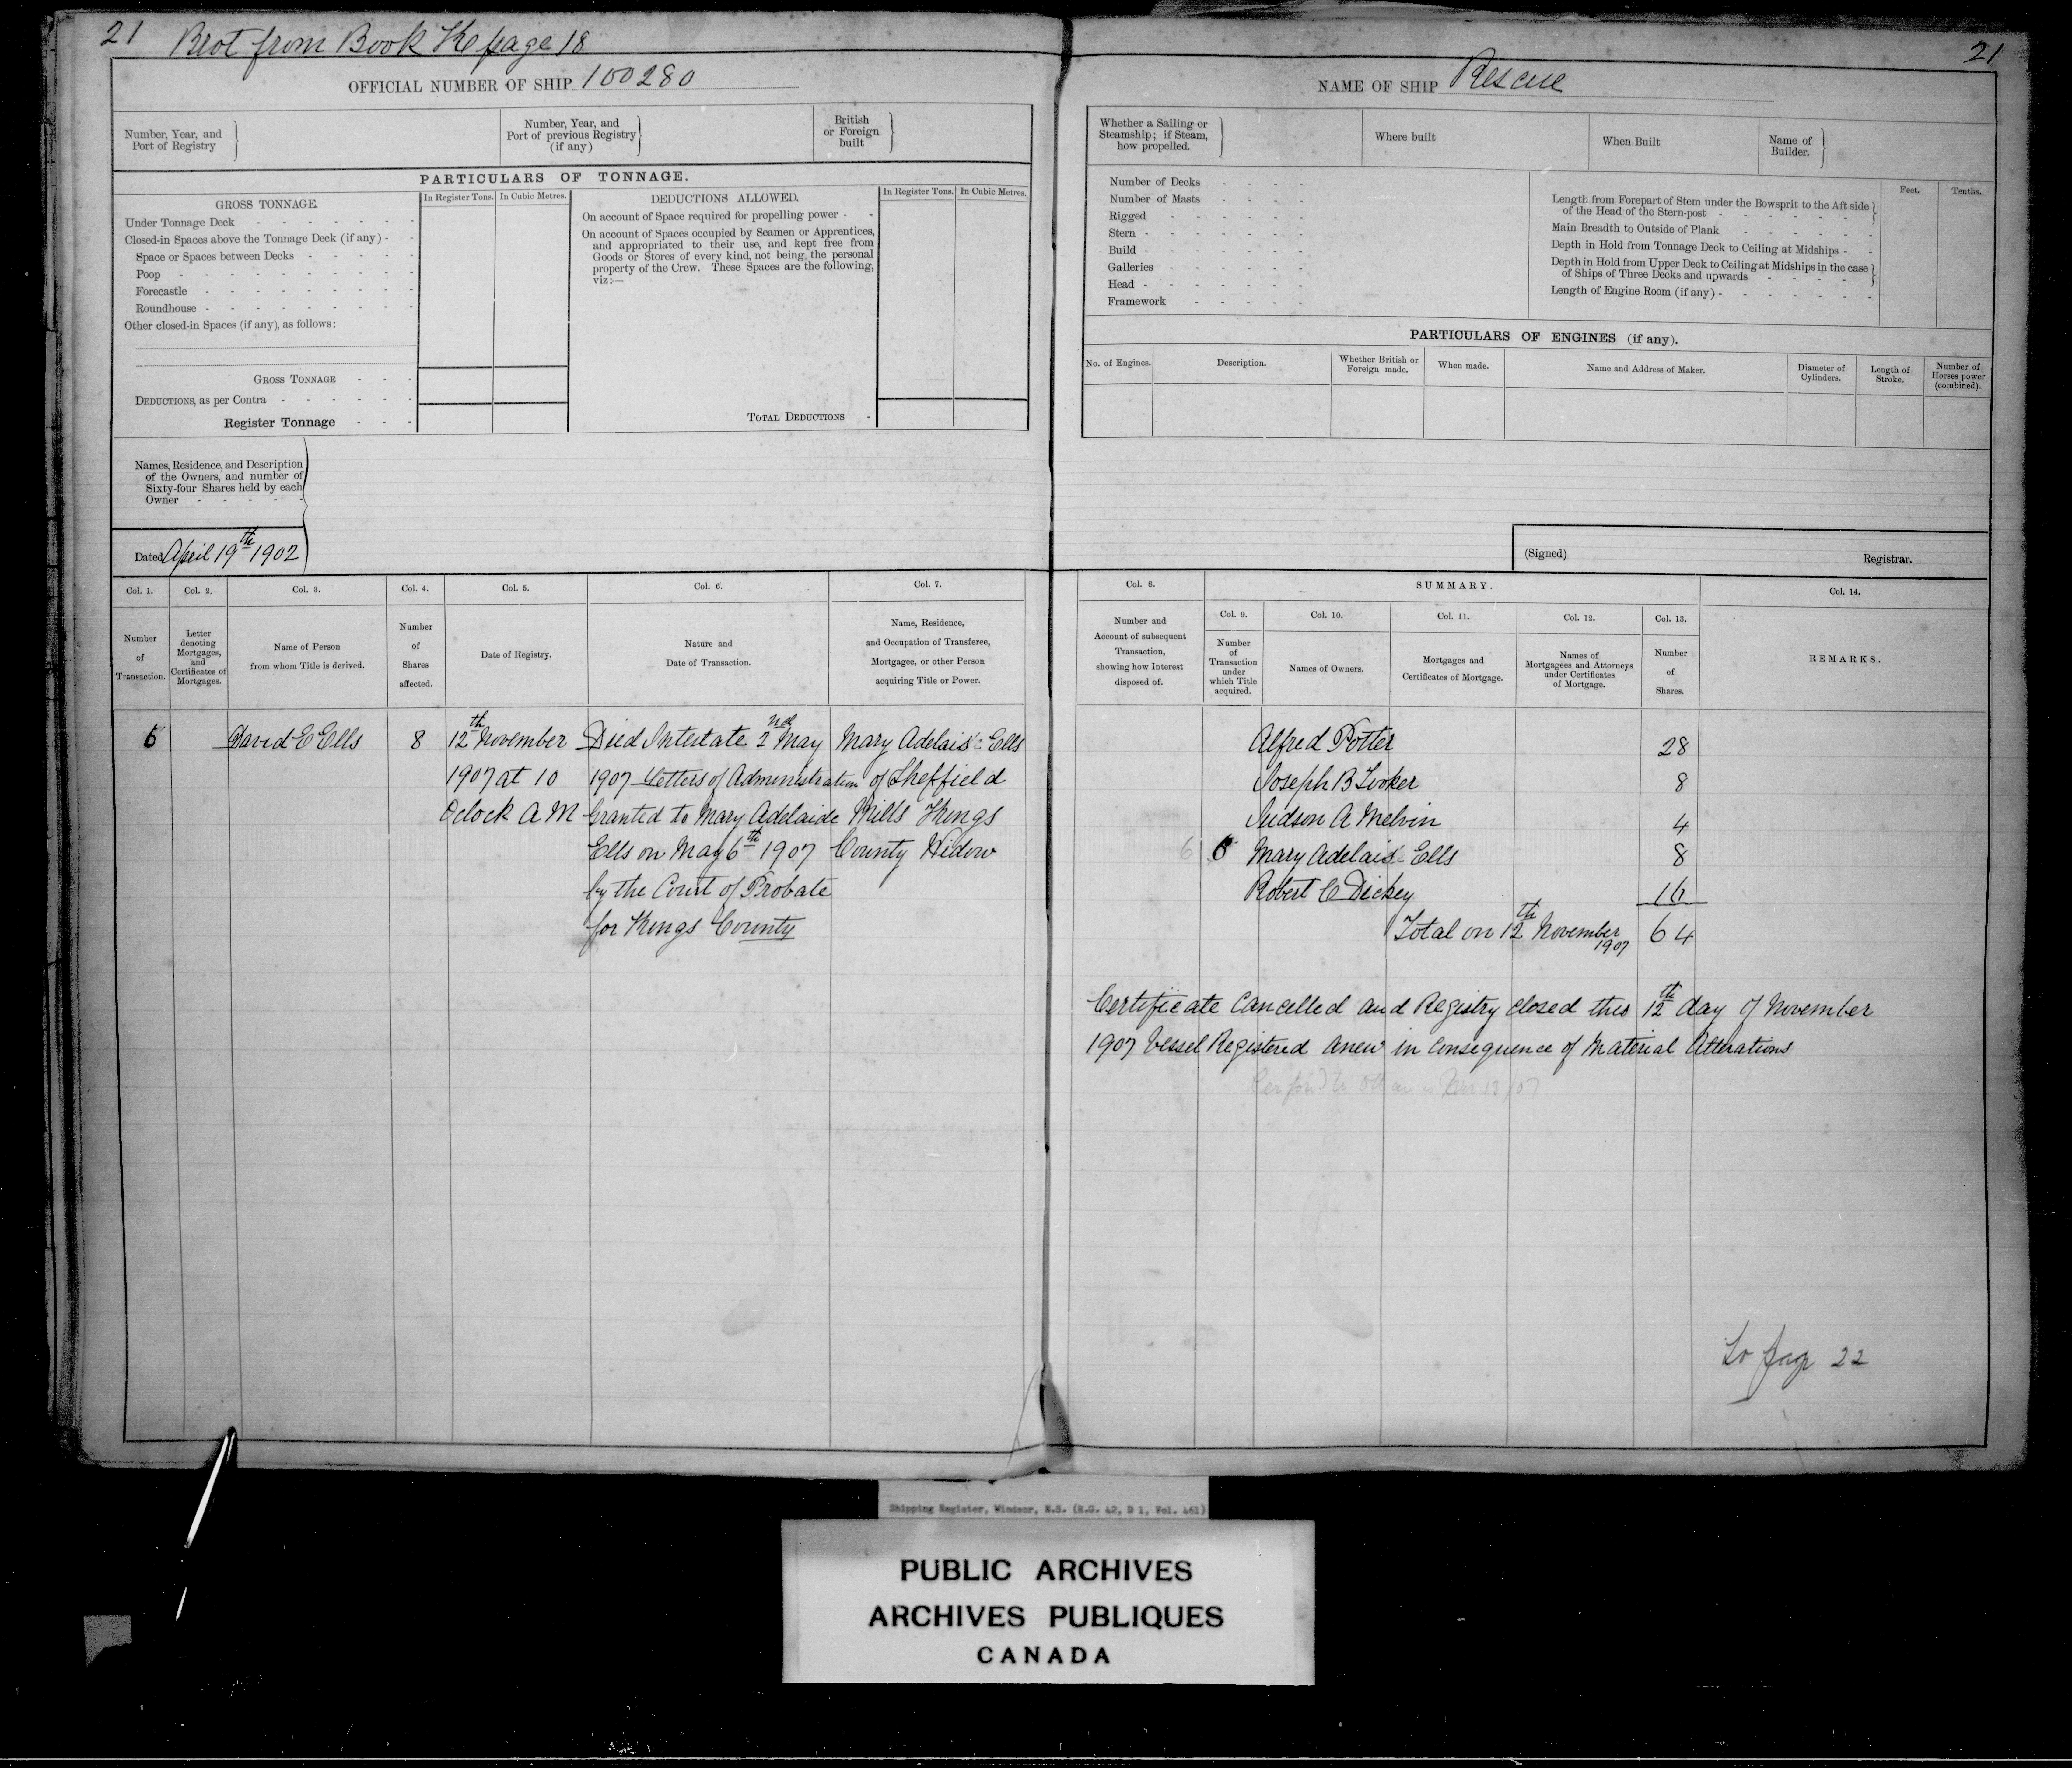 21 Brot from Book Ke page 18
21
OFFICIAL NUMBER OF SHIP 100280
NAME OF SHIP Rescue
Number, Year, and
Port of Registry
Number, Year, and
Port of previous Registry
(if any)
British
or Foreign
built
Whether a Sailing or
Steamship; if Steam,
how propelled.
Where built
When Built
Name of
Builder.
PARTICULARS OF TONNAGE.
GROSS TONNAGE.
In Register Tons. In Cubic Metres.
Under Tonnage Deck
Closed-in Spaces above the Tonnage Deck (if any)
Space or Spaces between Decks
Poop
Forecastle
Roundhouse
Other closed-in Spaces (if any), as follows:
GROSS TONNAGE
DEDUCTIONS, as per Contra
Register Tonnage
DEDUCTIONS ALLOWED.
In Register Tons. In Cubic Metres.
On account of Space required for propelling power
On account of Spaces occupied by Seamen or Apprentices,
and appropriated to their use, and kept free from
Goods or Stores of every kind, not being the personal
property of the Crew. These Spaces are the following,
viz:—
TOTAL DEDUCTIONS
Number of Decks
Number of Masts
Rigged
Stern
Build
Galleries
Head
Framework
Feet. Tenths.
Length from Forepart of Stem under the Bowsprit to the Aft side
of the Head of the Stern-post
Main Breadth to Outside of Plank
Depth in Hold from Tonnage Deck to Ceiling at Midships
Depth in Hold from Upper Deck to Ceiling at Midships in the case
of Ships of Three Decks and upwards
Length of Engine Room (if any)
PARTICULARS OF ENGINES (if any).
No. of Engines.
Description.
Whether British or
Foreign made.
When made.
Name and Address of Maker.
Diameter of
Cylinders.
Length of
Stroke.
Number of
Horses power
(combined).
Names, Residence, and Description
of the Owners, and number of
Sixty-four Shares held by each
Owner
Dated April 19th 1902
(Signed) Registrar.
Col. 1. Col. 2. Col. 3. Col. 4. Col. 5. Col. 6. Col. 7.
Number
of
Transaction.
Letter
denoting
Mortgages,
and
Certificates of
Mortgages.
Name of Person
from whom Title is derived.
Number
of
Shares
affected.
Date of Registry.
Nature and
Date of Transaction.
Name, Residence,
and Occupation of Transferee,
Mortgagee, or other Person
acquiring Title or Power.
6 David E Ells 8 12th November Died Intestate 2nd May Mary Adelaide Ells
1907 at 10 1907 Letters of Administration of Sheffield
Oclock A M Granted to Mary Adelaide Mills Kings
Ells on May 6th 1907 County Widow
by the Court of Probate
for Kings County
Col. 8.
SUMMARY.
Col. 14.
Col. 9. Col. 10. Col. 11. Col. 12. Col. 13.
Number and
Account of subsequent
Transaction,
showing how Interest
disposed of.
Number
of
Transaction
under
which Title
acquired.
Names of Owners.
Mortgages and
Certificates of Mortgage.
Names of
Mortgagees and Attorneys
under Certificates
of Mortgage.
Number
of
Shares.
REMARKS.
Alfred Potter 28
Joseph B Tooker 8
Judson A Melvin 4
6 6 Mary Adelaide Ells 8
Robert C Dickey 16
Total on 12th November 1907 64
Certificate Cancelled and Registry closed this 12th day of November
1907 Vessel Registered anew in Consequence of Material Alterations
To page 22
Shipping Register, Windsor, N.S. (R.G. 42, D 1, Vol. 461)
PUBLIC ARCHIVES
ARCHIVES PUBLIQUES
CANADA